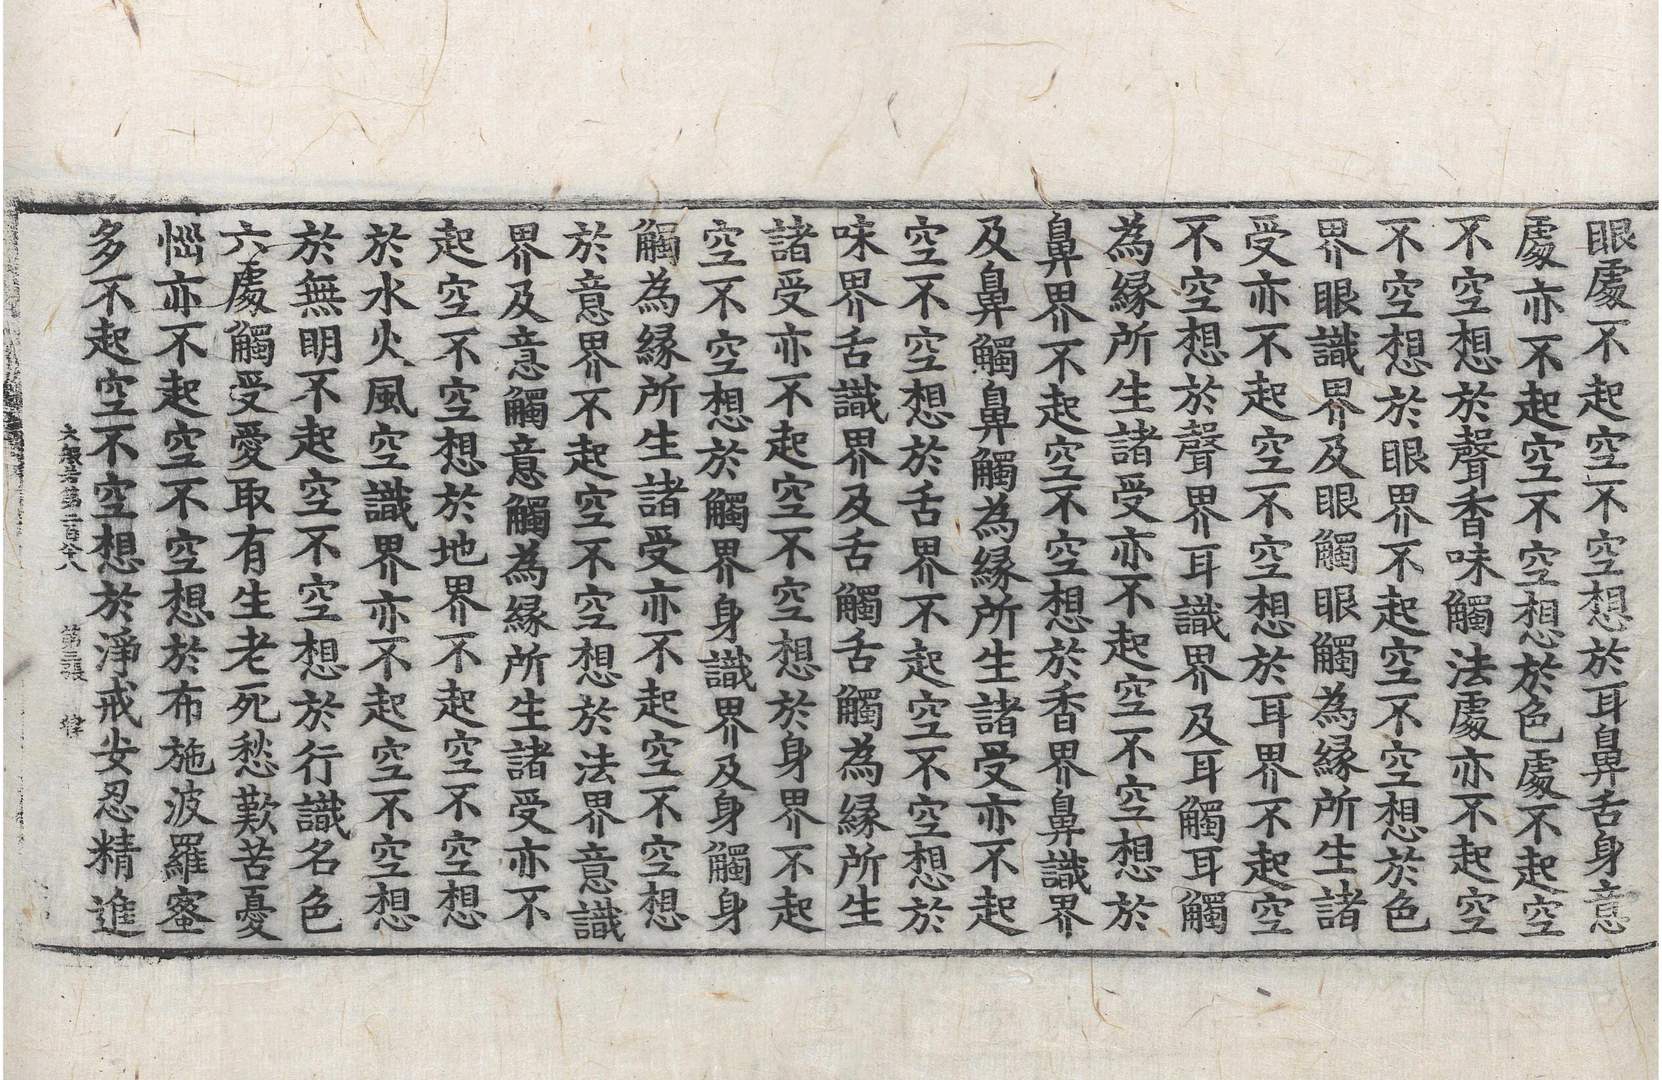 眼處不起空不空想於耳鼻舌身意
處亦不起空不空想於色處不起空
不空想於聲香味觸法處亦不起空
不空想於眼界不起空不空想於色
界眼識界及眼觸眼觸為緣所生諸
受亦不起空不空想於耳界不起空
不空想於聲界耳識界及耳觸耳觸
為緣所生諸受亦不起空不空想於
鼻界不起空不空想於香界鼻識界
及鼻觸鼻觸為緣所生諸受亦不起
空不空想於舌界不起空不空想於
味界舌識界及舌觸舌觸為緣所生
諸受亦不起空不空想於身界不起
空不空想於觸界身識界及身觸身
觸為緣所生諸受亦不起空不空想
於意界不起空不空想於法界意識
界及意觸意觸為緣所生諸受亦不
起空不空想於地界不起空不空想
於水火風空識界亦不起空不空想
於無明不起空不空想於行識名色
六處觸受愛取有生老死愁歎苦憂
惱亦不起空不空想於布施波羅蜜
多不起空不空想於淨戒安忍精進
大般若第二百六八 第三張